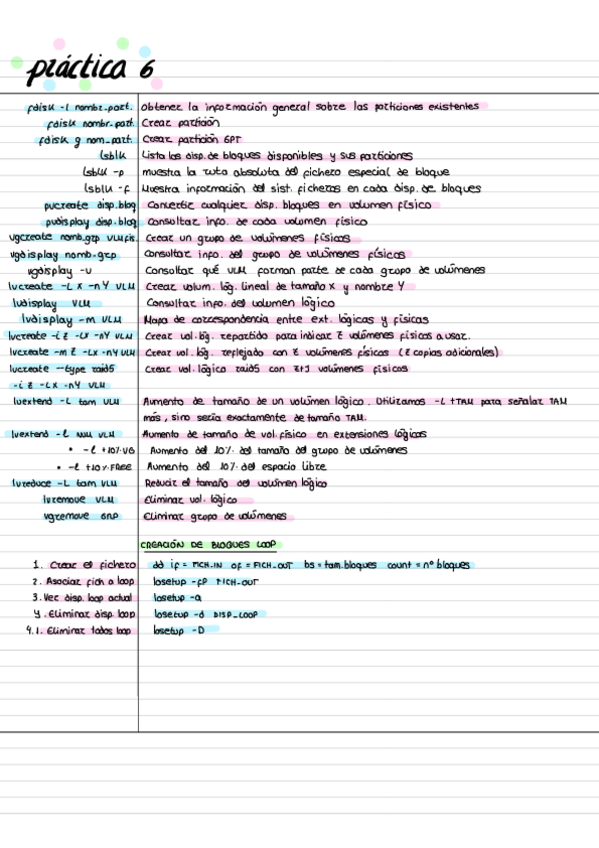 práctica 6
fdisk -l nombr_part. Obtener la información general sobre las particiones existentes
fdisk nombr_part. Crear partición
fdisk g nom_part. Crear partición GPT
lsblk Lista los disp. de bloques disponibles y sus particiones
lsblk -p muestra la ruta absoluta del fichero especial de bloque
lsblk -f Muestra información del sist. ficheros en cada disp. de bloques
pvcreate disp.bloq Convertir cualquier disp. bloques en volumen físico
pvdisplay disp.bloq Consultar info. de cada volumen físico
vgcreate nomb.grp VLM fís. Crear un grupo de volúmenes físicos
vgdisplay nomb.grp Consultar info. del grupo de volúmenes físicos
vgdisplay -v Consultar qué VLM forman parte de cada grupo de volúmenes
lvcreate -L X -nY VLM Crear volum. lóg. lineal de tamaño X y nombre Y
lvdisplay VLM Consultar info. del volumen lógico
lvdisplay -m VLM Mapa de correspondencia entre ext. lógicas y físicas
lvcreate -i Z -LX -nY VLM Crear vol. lóg. repartido para indicar Z volúmenes físicos a usar.
lvcreate -m Z -LX -nY VLM Crear vol. lóg. reflejado con Z volúmenes físicos (Z copias adicionales)
lvcreate --type raid5 Crear vol. lógico raid5 con Z+1 volúmenes físicos
-i Z -LX -nY VLM
lvextend -L tam VLM Aumento de tamaño de un volúmen lógico. Utilizamos -L +TAM para señalar TAM
más, sino sería exactamente de tamaño TAM.
lvextend -l NUM VLM Aumento de tamaño de vol. físico en extensiones lógicas
• -l +10%VG Aumento del 10% del tamaño del grupo de volúmenes
• -l +10%FREE Aumento del 10% del espacio libre
lvreduce -L tam VLM Reducir el tamaño del volúmen lógico
lvremove VLM Eliminar vol. lógico
vgremove GRP Eliminar grupo de volúmenes
CREACIÓN DE BLOQUES LOOP
1. Crear el fichero dd if = FICH_IN of = FICH_OUT bs = tam.bloques count = nº bloques
2. Asociar fich a loop losetup -fP FICH_OUT
3. Ver disp. loop actual losetup -a
4. Eliminar disp loop losetup -d DISP_LOOP
4.1. Eliminar todos loop losetup -D